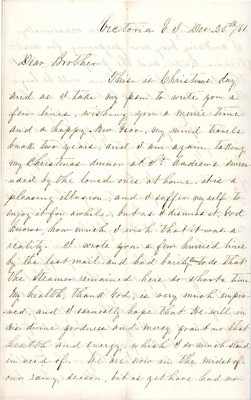 Victoria V.I. Dec 25th/61
Dear Brother
This is Christmas day
and as I take my pen to write you a
few lines, wishing you a merrie time
and a happy New Year, my mind travels
back two years, and I am again taking
my Christmas dinner at St. Andrews surrounded
by the loved ones at home. it is a
pleasing illusion, and I suffer myself to
enjoy it for awhile, but as I dismiss it, God
knows how much I wish that it was a
reality. I wrote you a few hurried lines
by the last mail, and had barely to do that
the Steamer remained here so short a time
My health, thank God, is very much improved,
and I earnestly hope that He will in
his divine goodness and mercy grant me that
health and energy, which I so much stand
in need of. We are now in the midst of
our rainy season, but as yet have had